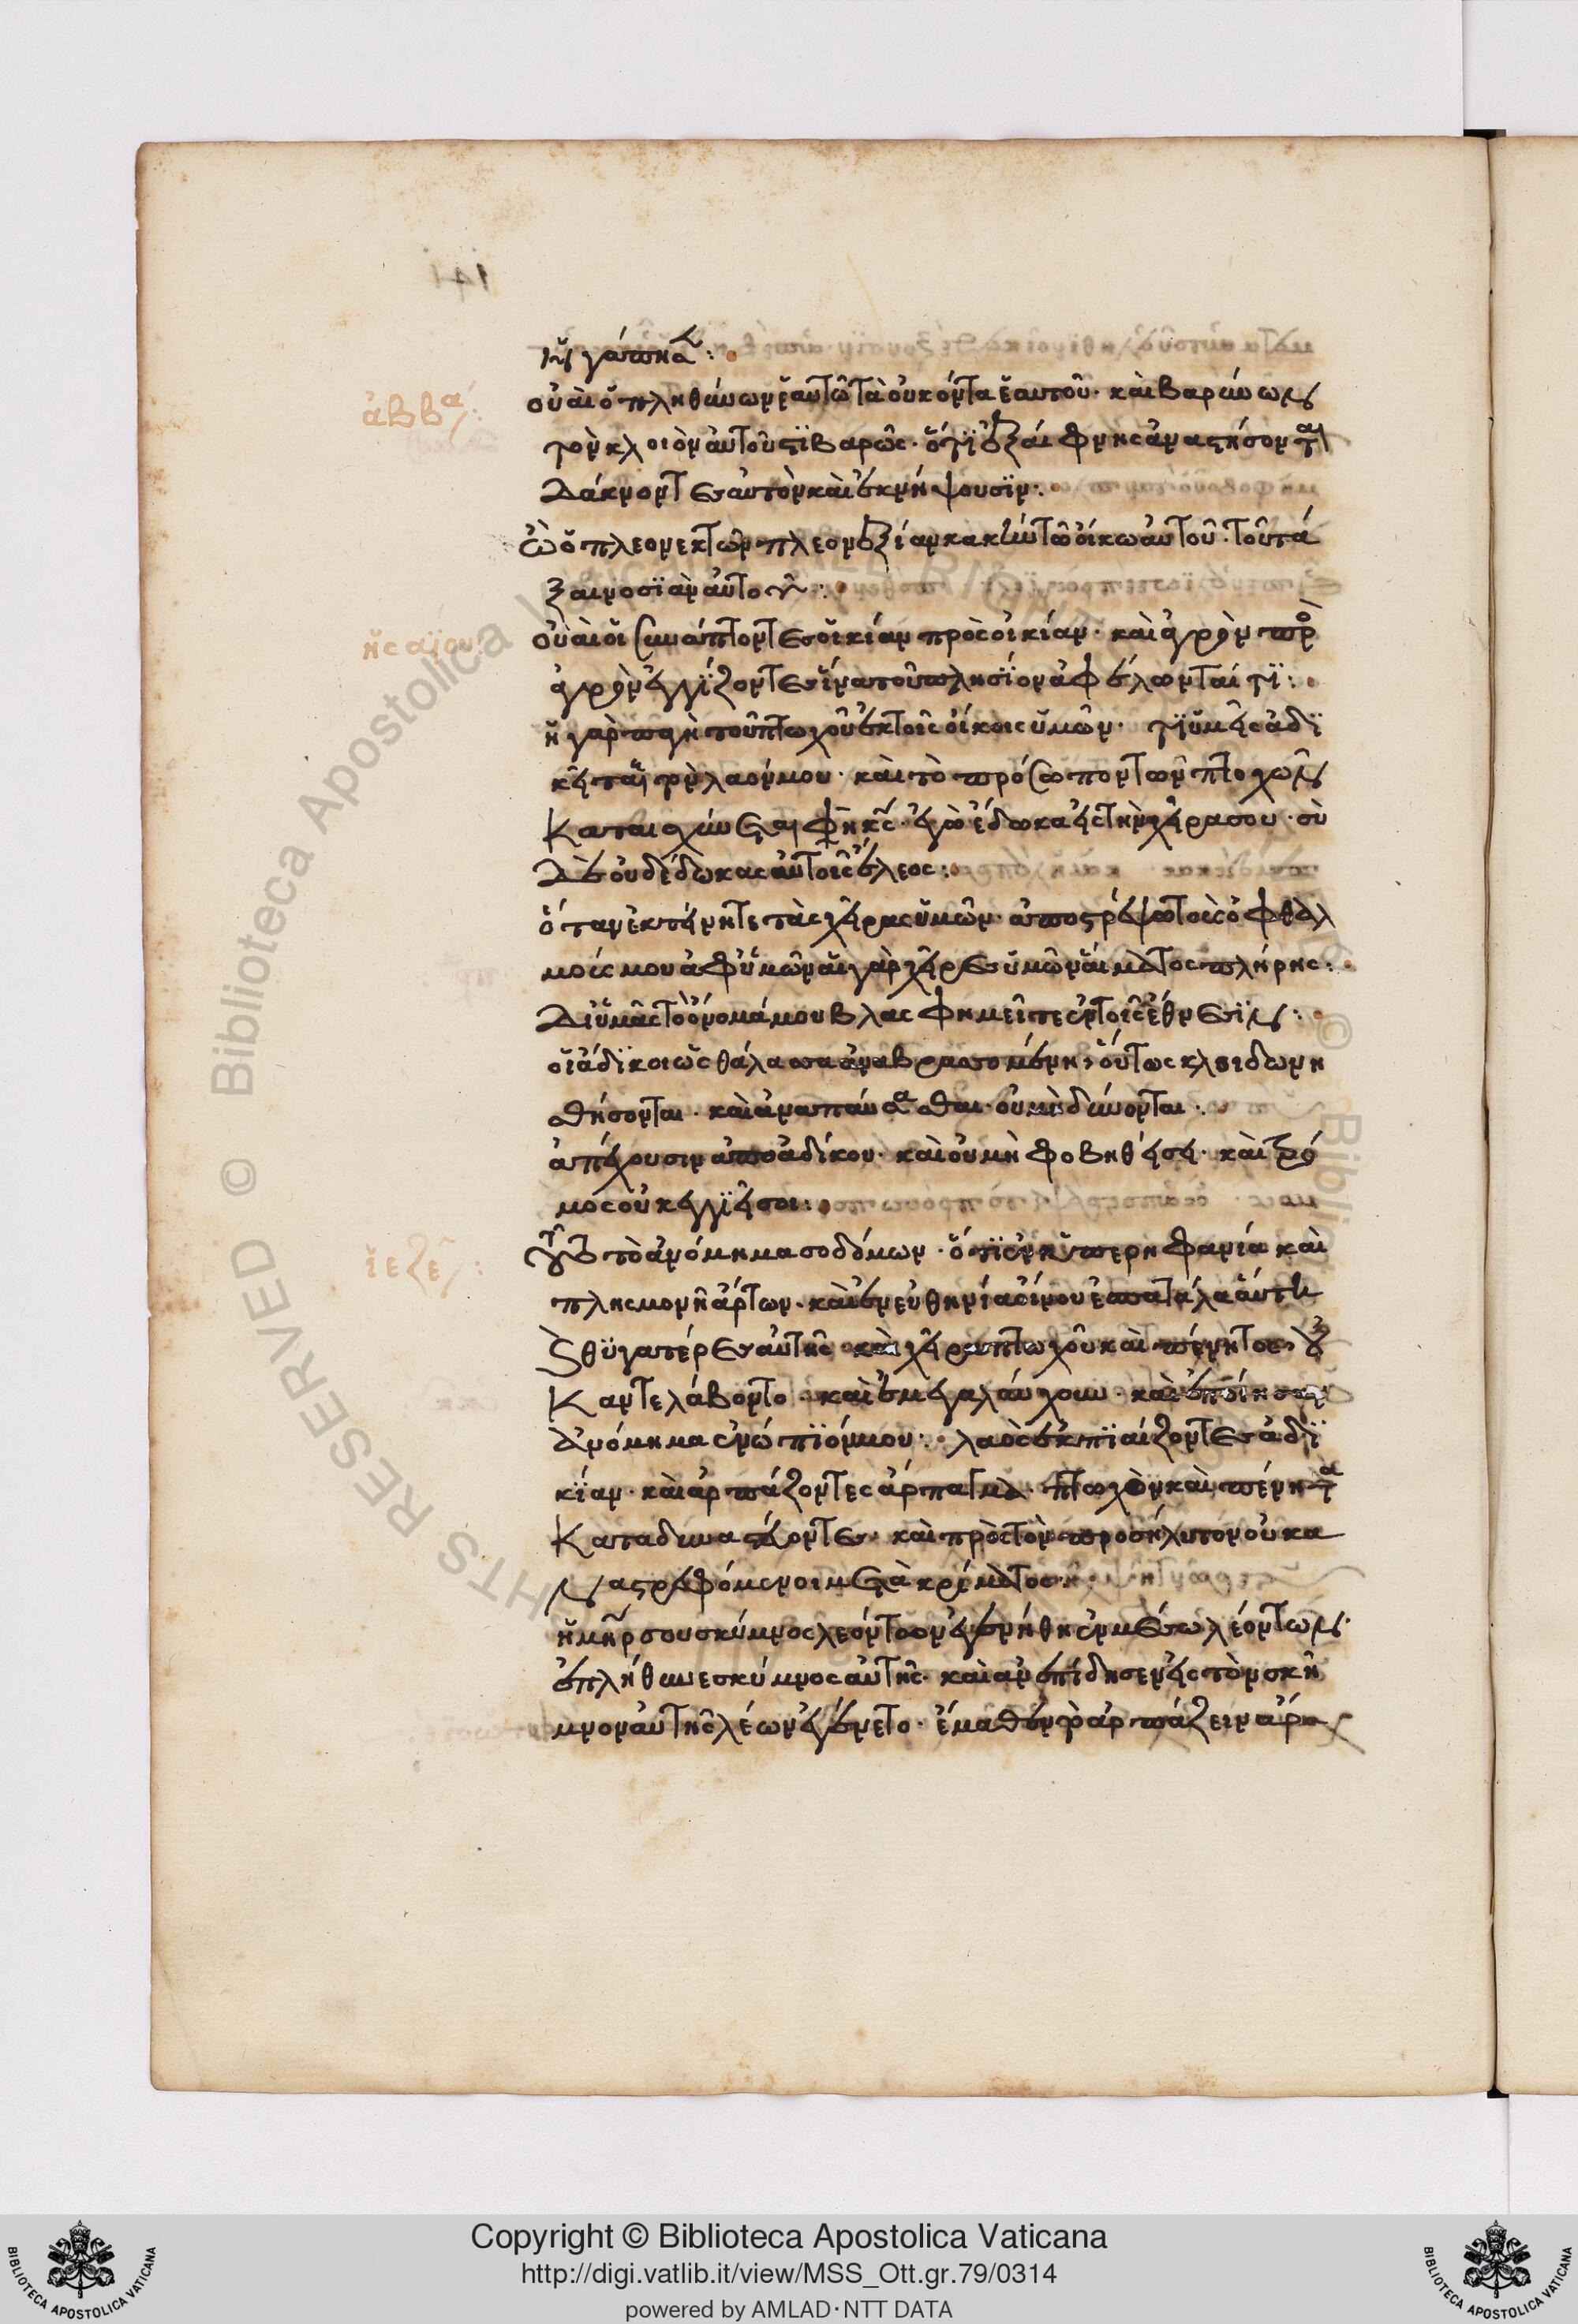 ἠγάπησα:
ἀββα:
οὐαὶ ὁ πληθύνων ἑαυτῶ τὰ οὐκ ὄντα ἑαυτοῦ· καὶ βαρύνων
τὸν κλοιὸν αὐτοῦ στιβαρῶς· ὅτι ἐξαίφνης ἀναστήσονται
δάκνοντες αὐτὸν καὶ ἐκνήψουσιν:
ὢ ὁ πλεονεκτῶν πλεονεξίαν κακὴν τῶ οἴκω αὐτοῦ· τοῦ τά
ξαι νοσιὰν αὐτοῦ:
ἠσαΐου:
οὐαὶ οἱ συνάπτοντες οἰκίαν πρὸς οἰκίαν· καὶ ἀγρὸν πρὸς
ἀγρὸν ἐγγίζοντες ἵνα τοῦ πλησίον ἀφέλωνταί τι:
ἡ γὰρ παγὴ τοῦ πτωχοῦ ἐκ τοῖς οἴκοις ὑμῶν· τί ὑμεῖς ἀδι
κεῖται τὸν λαόν μου· καὶ τὸ πρόσωπον τῶν πτοχῶν
καταισχύνεται φησὶ κς· ἐγὼ ἔδωκα εἰς τὴν χεῖρα σου· σὺ
δὲ οὐ δέδωκας αὐτοῖς ἔλεος:
ὅταν ἐκτείνητε τὰς χεῖρας ὑμῶν· ἀποστρέψω τοὺς ὀφθαλ
μούς μου ἀφ' ὑμῶν αἱ γὰρ χεῖρες ὑμῶν αἵματος πλήρης:
δι' ὑμᾶς τὸ ὄνομά μου βλασφημεῖτε ἐν τοῖς ἔθνεσιν:
οἱ ἄδικοι ὡς θάλασσα ἀναβρασσομένη, οὕτως κλειδωνη
σθήσονται· καὶ ἀναπαύσασθαι οὐ μὴ δύνονται:
ἀπέχου σιν ἀπὸ ἀδίκου· καὶ οὐ μὴ φοβηθείσει· καὶ τρό
μος οὐκ ἐγγιεῖ σοι:
ἰεζε:
τοῦτο τὸ ἀνόμημα σοδόμων· ὅτι ἐν ὑπερηφανία καὶ
πλησμονῆ ἄρτων· καὶ ἐν εὐθηνία οἴνου ἐσπατάλα αὕτη
καὶ θυγατέρες αὐτῆς καὶ χεῖρα πτωχοῦ καὶ πένητος οὐ
κ ἀντελάβοντο· καὶ ἐμεγαλαύχουν· καὶ ἐποίησαν
ἀνόμημα ἐνώπιόν μου:· λαὸς ἐκπιαίζοντες ἀδι
κίαν· καὶ ἁρπάζοντες ἁρπάγματα· πτωχὸν καὶ πένητα
καταδυναστεύοντες· καὶ πρὸς τὸν προσήλυτον οὐκ ἀ
ναστρεφόμενοι μετὰ κρίματος:
ἡ μήτηρ σου σκύμνος λεόντων ἐγενήθη ἐν μέσω λεόντων·
ἐπλήθυνε σκύμνος αὐτῆς· καὶ ἀνεπίδησεν εἰς τὸν σκῆ
μνον αὐτῆς λέων ἐγένετο· ἔμαθεν τὸ ἁρπάζειν ἁρπ
Copyright © Biblioteca Apostolica Vaticana
http://digi.vatlib.it/view/MSS_Ott.gr.79/0314
powered by AMLAD·NTT DATA